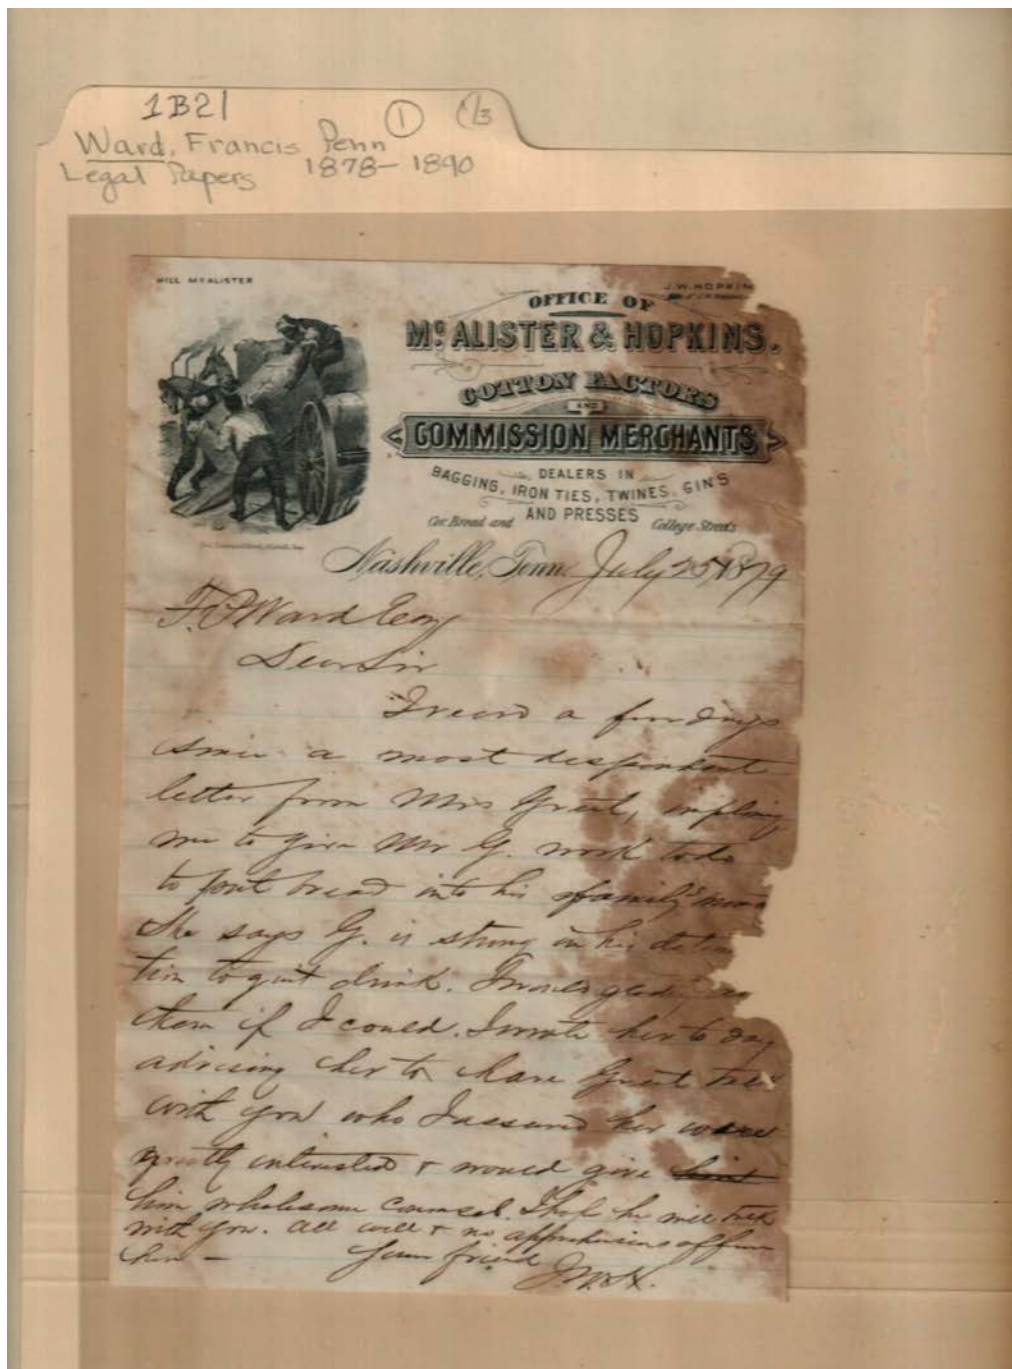 1B21
① 1/3
Ward, Francis Penn
Legal Papers 1878-1890
HILL McALISTER
J.W. HOPKIN
OFFICE OF
McALISTER & HOPKINS.
COTTON FACTORS
AND
COMMISSION MERCHANTS
DEALERS IN
BAGGING, IRON TIES, TWINES, GINS
AND PRESSES
Cor. Broad and College Streets
Nashville, Tenn. July 25 1879
F. P. Ward Esq
Dear Sir
I recd a few days
since a most despondent
letter from Mrs Grant, imploring
me to give Mr G. work to do
to put bread into his family's
She says G. is strong in his
tion to quit drink.
them if I could. I wrote her to day
advising her to have Grant talk
with you who I assured her were
greatly interested & would give
him wholesome counsel. I hope he will talk
with you. All well & no apprehensions of
here - Your friend
J.W.H.